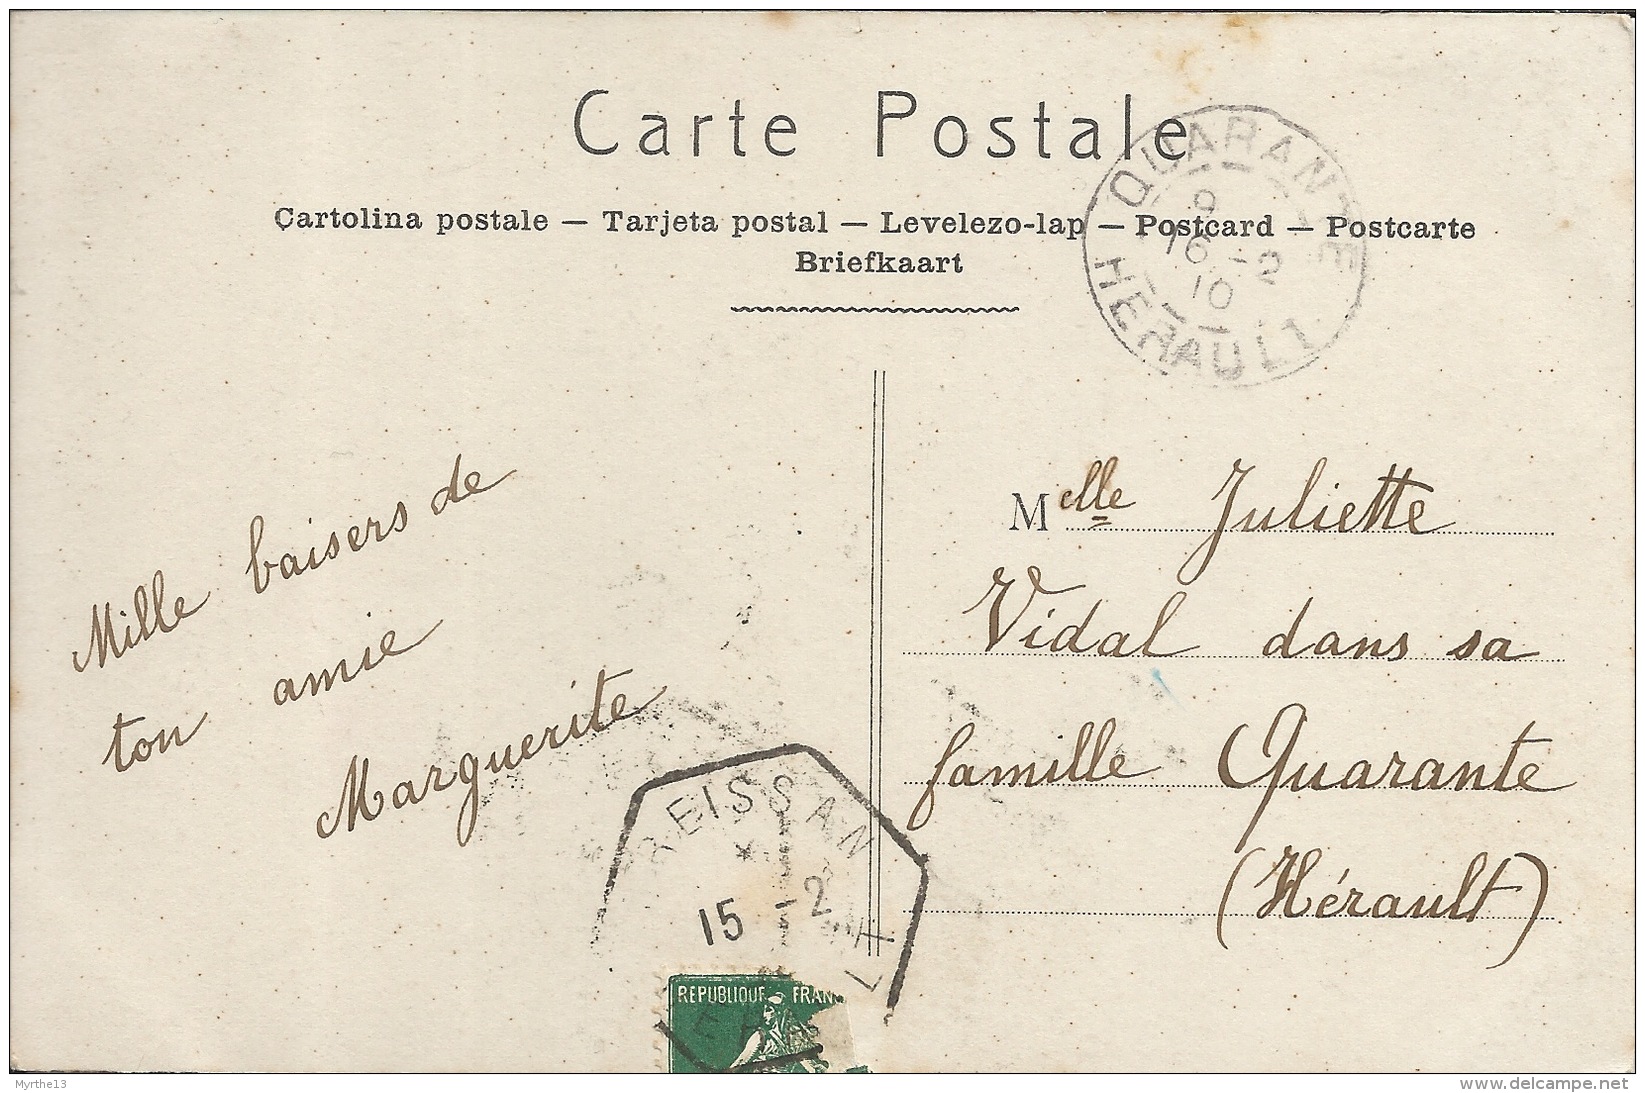 Carte Postale
Cartolina postale — Tarjeta postal — Levelezo-lap — Postcard — Postcarte
Briefkaart
QUARANTE
9
16 - 2
10
HERAULT
Mille baisers de
ton amie
Marguerite
Melle Juliette
Vidal dans sa
famille Quarante
(Hérault)
REISSAN
*
15 - 2
REPUBLIQUE FRAN
Myrthe13
www.delcampe.net